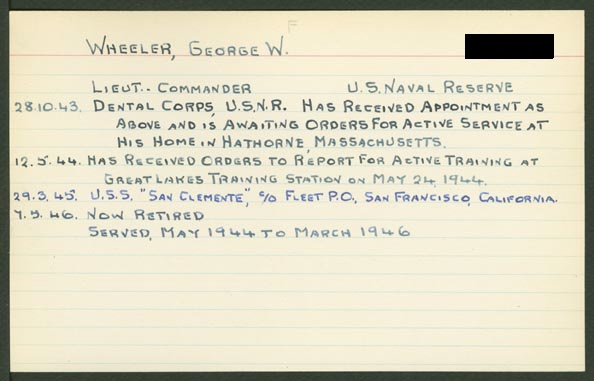 F
WHEELER, GEORGE W.
LIEUT.- COMMANDER U.S. NAVAL RESERVE
28.10.43. DENTAL CORPS, U.S.N.R. HAS RECEIVED APPOINTMENT AS
ABOVE AND IS AWAITING ORDERS FOR ACTIVE SERVICE AT
HIS HOME IN HATHORNE, MASSACHUSETTS.
12.5.44. HAS RECEIVED ORDERS TO REPORT FOR ACTIVE TRAINING AT
GREAT LAKES TRAINING STATION ON MAY 24, 1944.
29.3.45. U.S.S. "SAN CLEMENTE", c/o FLEET P.O., SAN FRANCISCO, CALIFORNIA.
7.5.46. NOW RETIRED
SERVED, MAY 1944 TO MARCH 1946